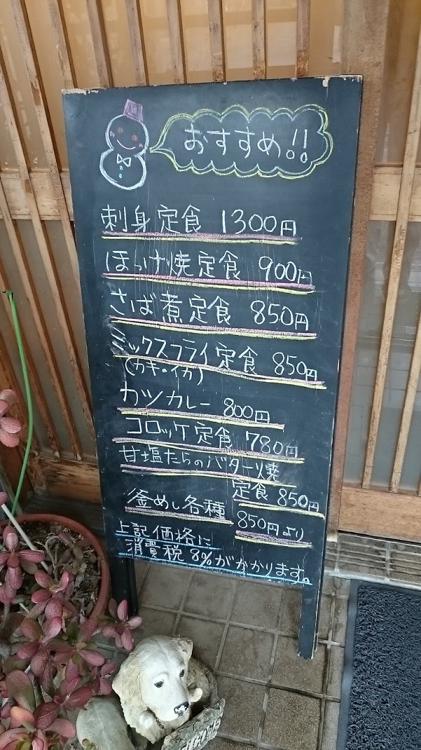 おすすめ!!
刺身定食 1300円
ほっけ焼定食 900円
さば煮定食 850円
ミックスフライ定食 850円
(カキ・イカ)
カツカレー 800円
コロッケ定食 780円
甘塩たらのバター焼
定食 850円
釜めし各種 850円より
上記価格に
消費税8%がかかります。